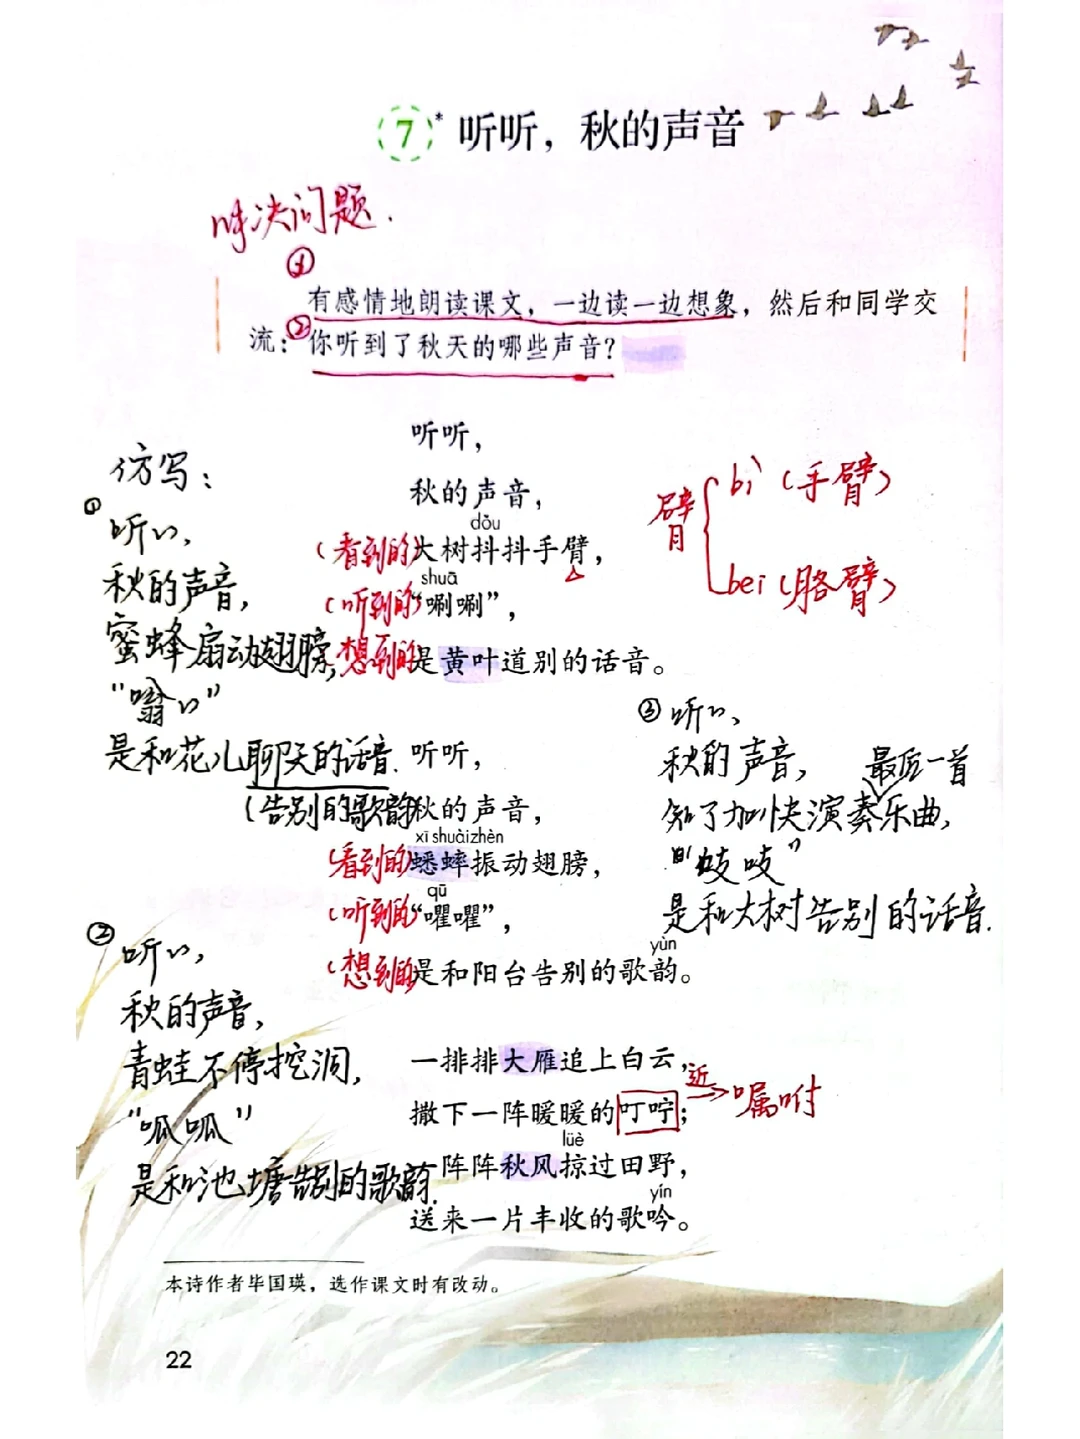 7* 听听，秋的声音
解决问题.
①
有感情地朗读课文，一边读一边想象，然后和同学交
流：②你听到了秋天的哪些声音？
听听，
秋的声音，
dǒu
(看到的)大树抖抖手臂，
shuā
(听到的)“唰唰”，
(想到的)是黄叶道别的话音。
臂 bì (手臂)
bei (胳臂)
仿写：
①听〃，
秋的声音，
蜜蜂扇动翅膀，
“嗡〃”
是和花儿聊天的话音.
(告别的歌韵
听听，
秋的声音，
xī shuài zhèn
(看到的)蟋蟀振动翅膀，
qū
(听到的)“㘗㘗”，
yùn
(想到的)是和阳台告别的歌韵。
③听〃、
秋的声音，
最后一首
知了加快演奏乐曲，
“吱吱”
是和大树告别的话音.
②听〃，
秋的声音，
青蛙不停挖洞，
“呱呱”
是和池塘告别的歌韵.
一排排大雁追上白云，
撒下一阵暖暖的叮咛；
近 → 嘱咐
lüè
一阵阵秋风掠过田野，
yín
送来一片丰收的歌吟。
本诗作者毕国瑛，选作课文时有改动。
22